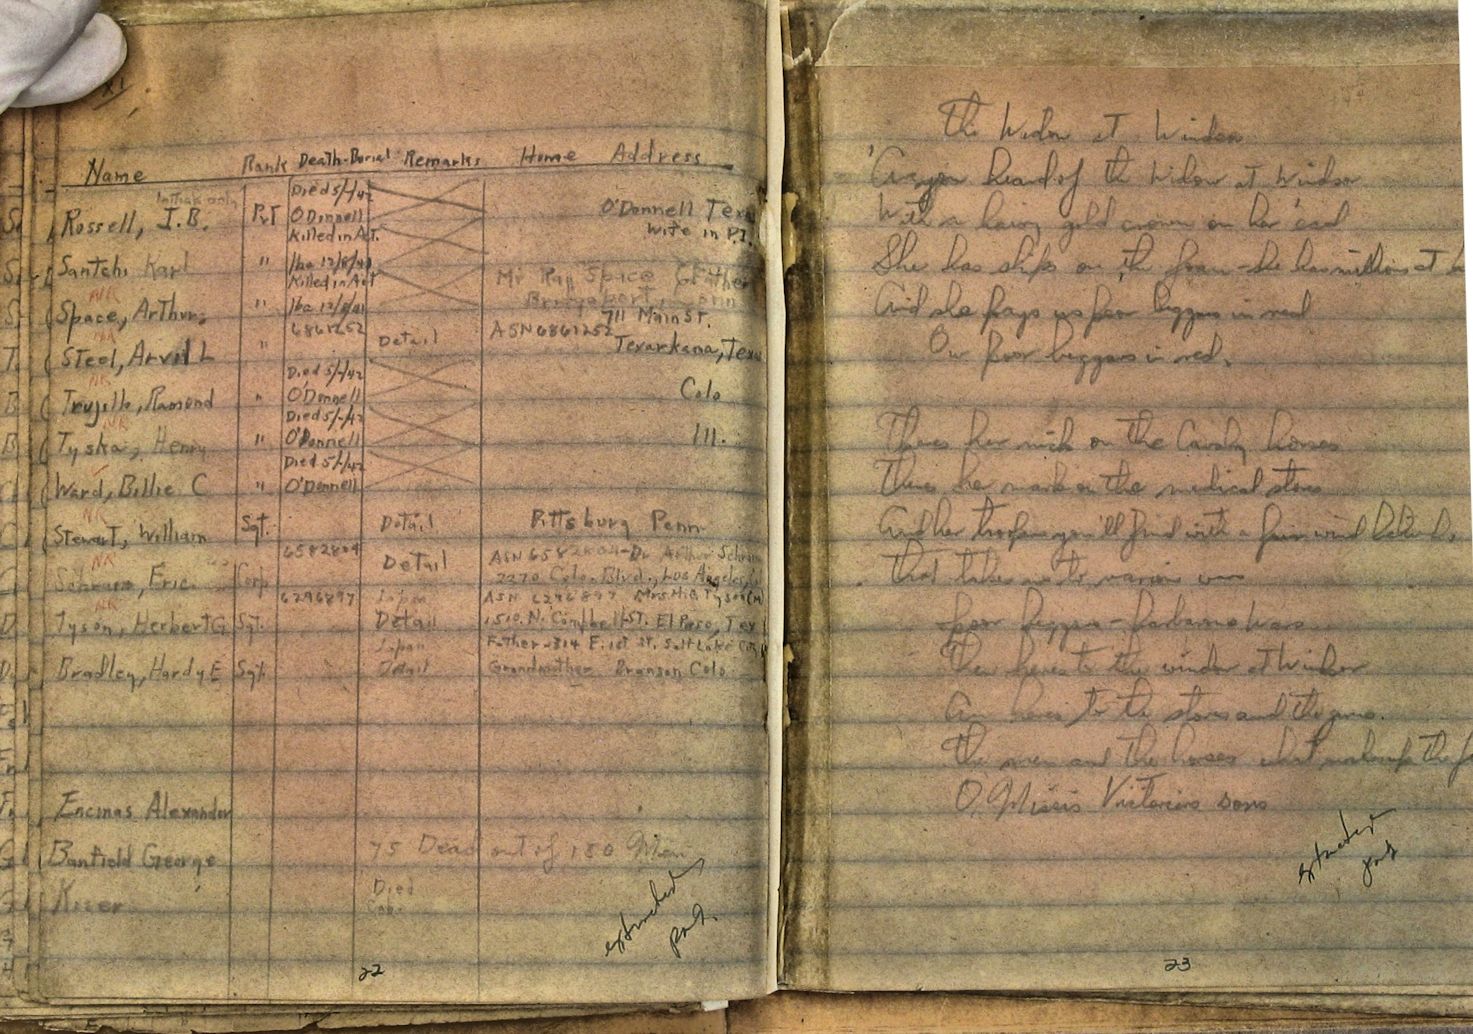 XI
Name Rank Death-Burial Remarks Home Address
Died 5/-/42
Rossell, J.B. Pvt O'Donnell O'Donnell Texa
Killed in Act. Wife in P.I.
Santchi Karl " 12/8/41
Killed in Act Mr Ray Space (Father
NR
Space, Arthur " 12/8/41 Bridgeport,
6861252 711 Main St.
NR
Steel, Arvil L " Detail ASN 6861252 Texarkana, Texa
Died 5/-/42
NR
Trujillo, Ramond " O'Donnell Colo
Died 5/-/42
NR
Tyska, Henry " O'Donnell Ill.
Died 5/-/42
Ward, Billie C " O'Donnell
NR
Stewart, William Sgt. Detail Pittsburg Penn
6582804 ASN 6582804-Dr. Arthur Schram
NR
Schram, Eric Corp Detail 2270 Colo. Blvd., Los Angeles,
6296897 Japan ASN 6296897 Mrs. H.G. Tyson (M)
NR
Tyson, Herbert G Sgt. Detail 1510 N. Campbell St. El Paso, Tex
Japan Father-314 E. 1st St. Salt Lake City
Bradley, Hardy E Sgt. Detail Grandmother Branson Colo.
Encinas Alexander
Banfield George 75 Dead out of 180 Men
Died
Kizer Cab.
extracted
22
The Widow at Windsor
'Ave you heard of the Widow at Windsor
With a hairy gold crown on her 'ead
She has ships on the foam-she has millions at h
And she pays us poor beggars in red
Our poor beggars in red.
Theres her nick on the Cavalry horses
Theres her mark on the medical stores
And her troopers you'll find with a fair wind behind
That takes us to various wars
Poor beggars - barbarous wars
Then heres to the widow at Windsor
An heres to the stores and the guns.
The men and the horses what makeup the f
O Missis Victorias sons
extracted
23